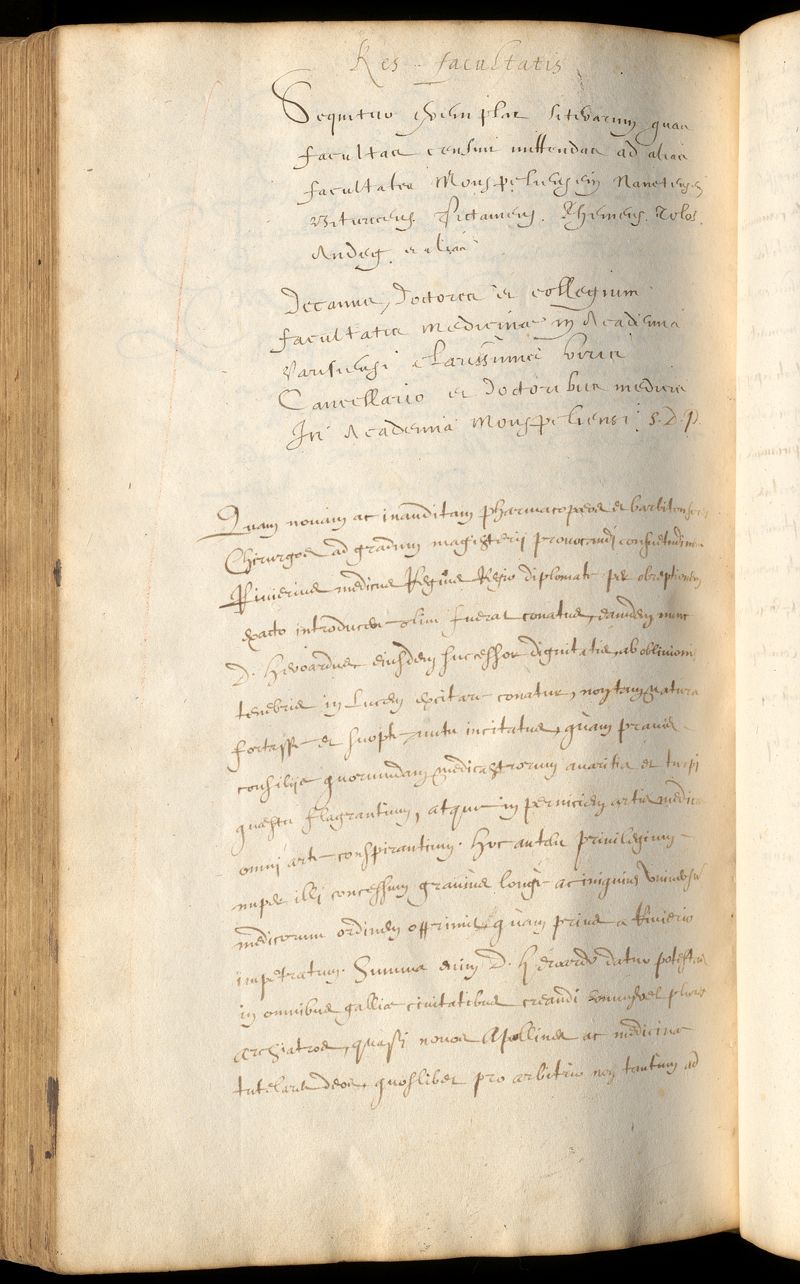 Res facultatis
Sequitur exemplar literarum quas
facultas censuit mittendas ad alias
facultates Monspeliensem Nanetensem
Bituricens. Pictaviens. Rhemens. Tolos.
Andeg. et alias
Decanus, Doctores et collegium
facultatis medicinae in Academia
Parisiensi clarissimis viris
Cancellario et Doctoribus medicis
In Academia Monspeliensi S. D. P.
Quam novam ac inauditam pharmacopoeos et barbitonsores
Chirurgos ad gradum magisterij provocandi consuetudinem
Riverius medicus Reginae Regio diplomate per obreptionem
exacto introducere olim fuerat conatus, eamdem nunc
D. Heroardus eiusdem successor dignitatis, ab oblivionis
tenebris in lucem excitare conatur, non tam natura
fortasse et suopte nutu incitatus, quam pravis
consilijs quorumdam medicastrorum avaritia et turpi
quaestu flagrantium, atque in perniciem artis medicae
omni arte conspirantium. Hoc autem privilegium
nuper illi concessum gravius longe ac iniquius universum
medicorum ordinem opprimit, quam prius a Riverio
impetratum. Summa enim D. Heroardo datur potestas
in omnibus galliae civitatibus creandi unum vel plures
archiatros, quasi novos Apollines ac medicinae
tutelares deos, quoslibet pro arbitrio non tantum ad